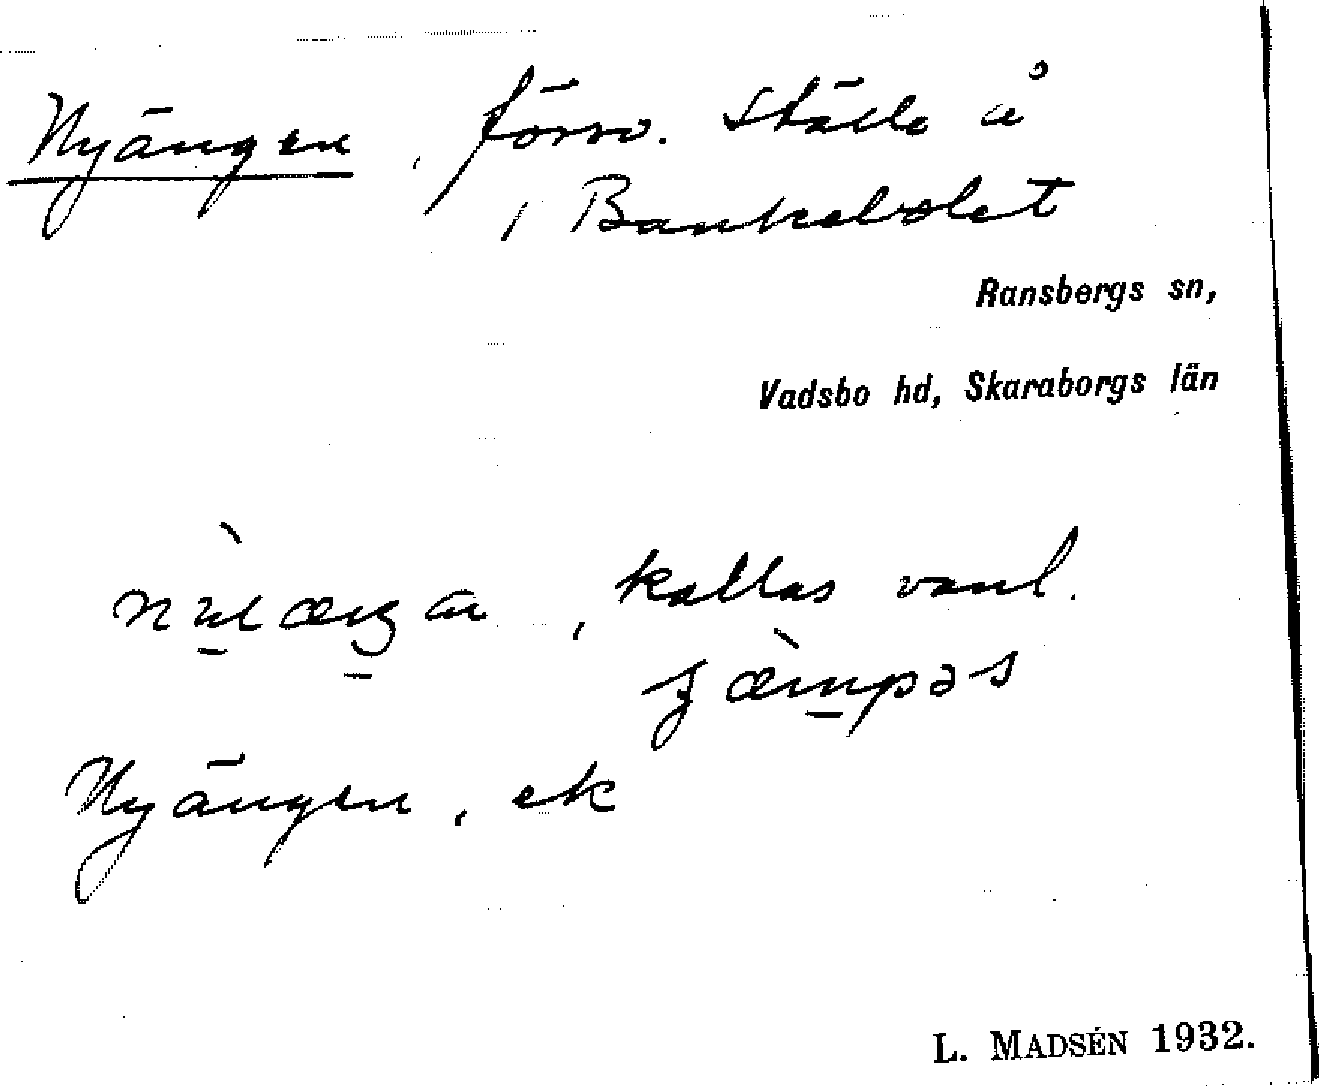 Nyängen, försv. ställe å
1 Bankebolet
Ransbergs sn,
Vadsbo hd, Skaraborgs län
kallas vanl.
Nyängen, ek
L. MADSÉN 1932.